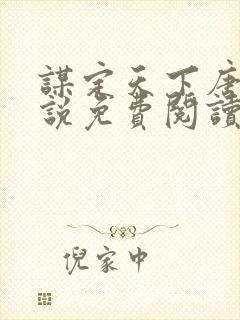 謀定天下唐
說免費閱讀
倪家中